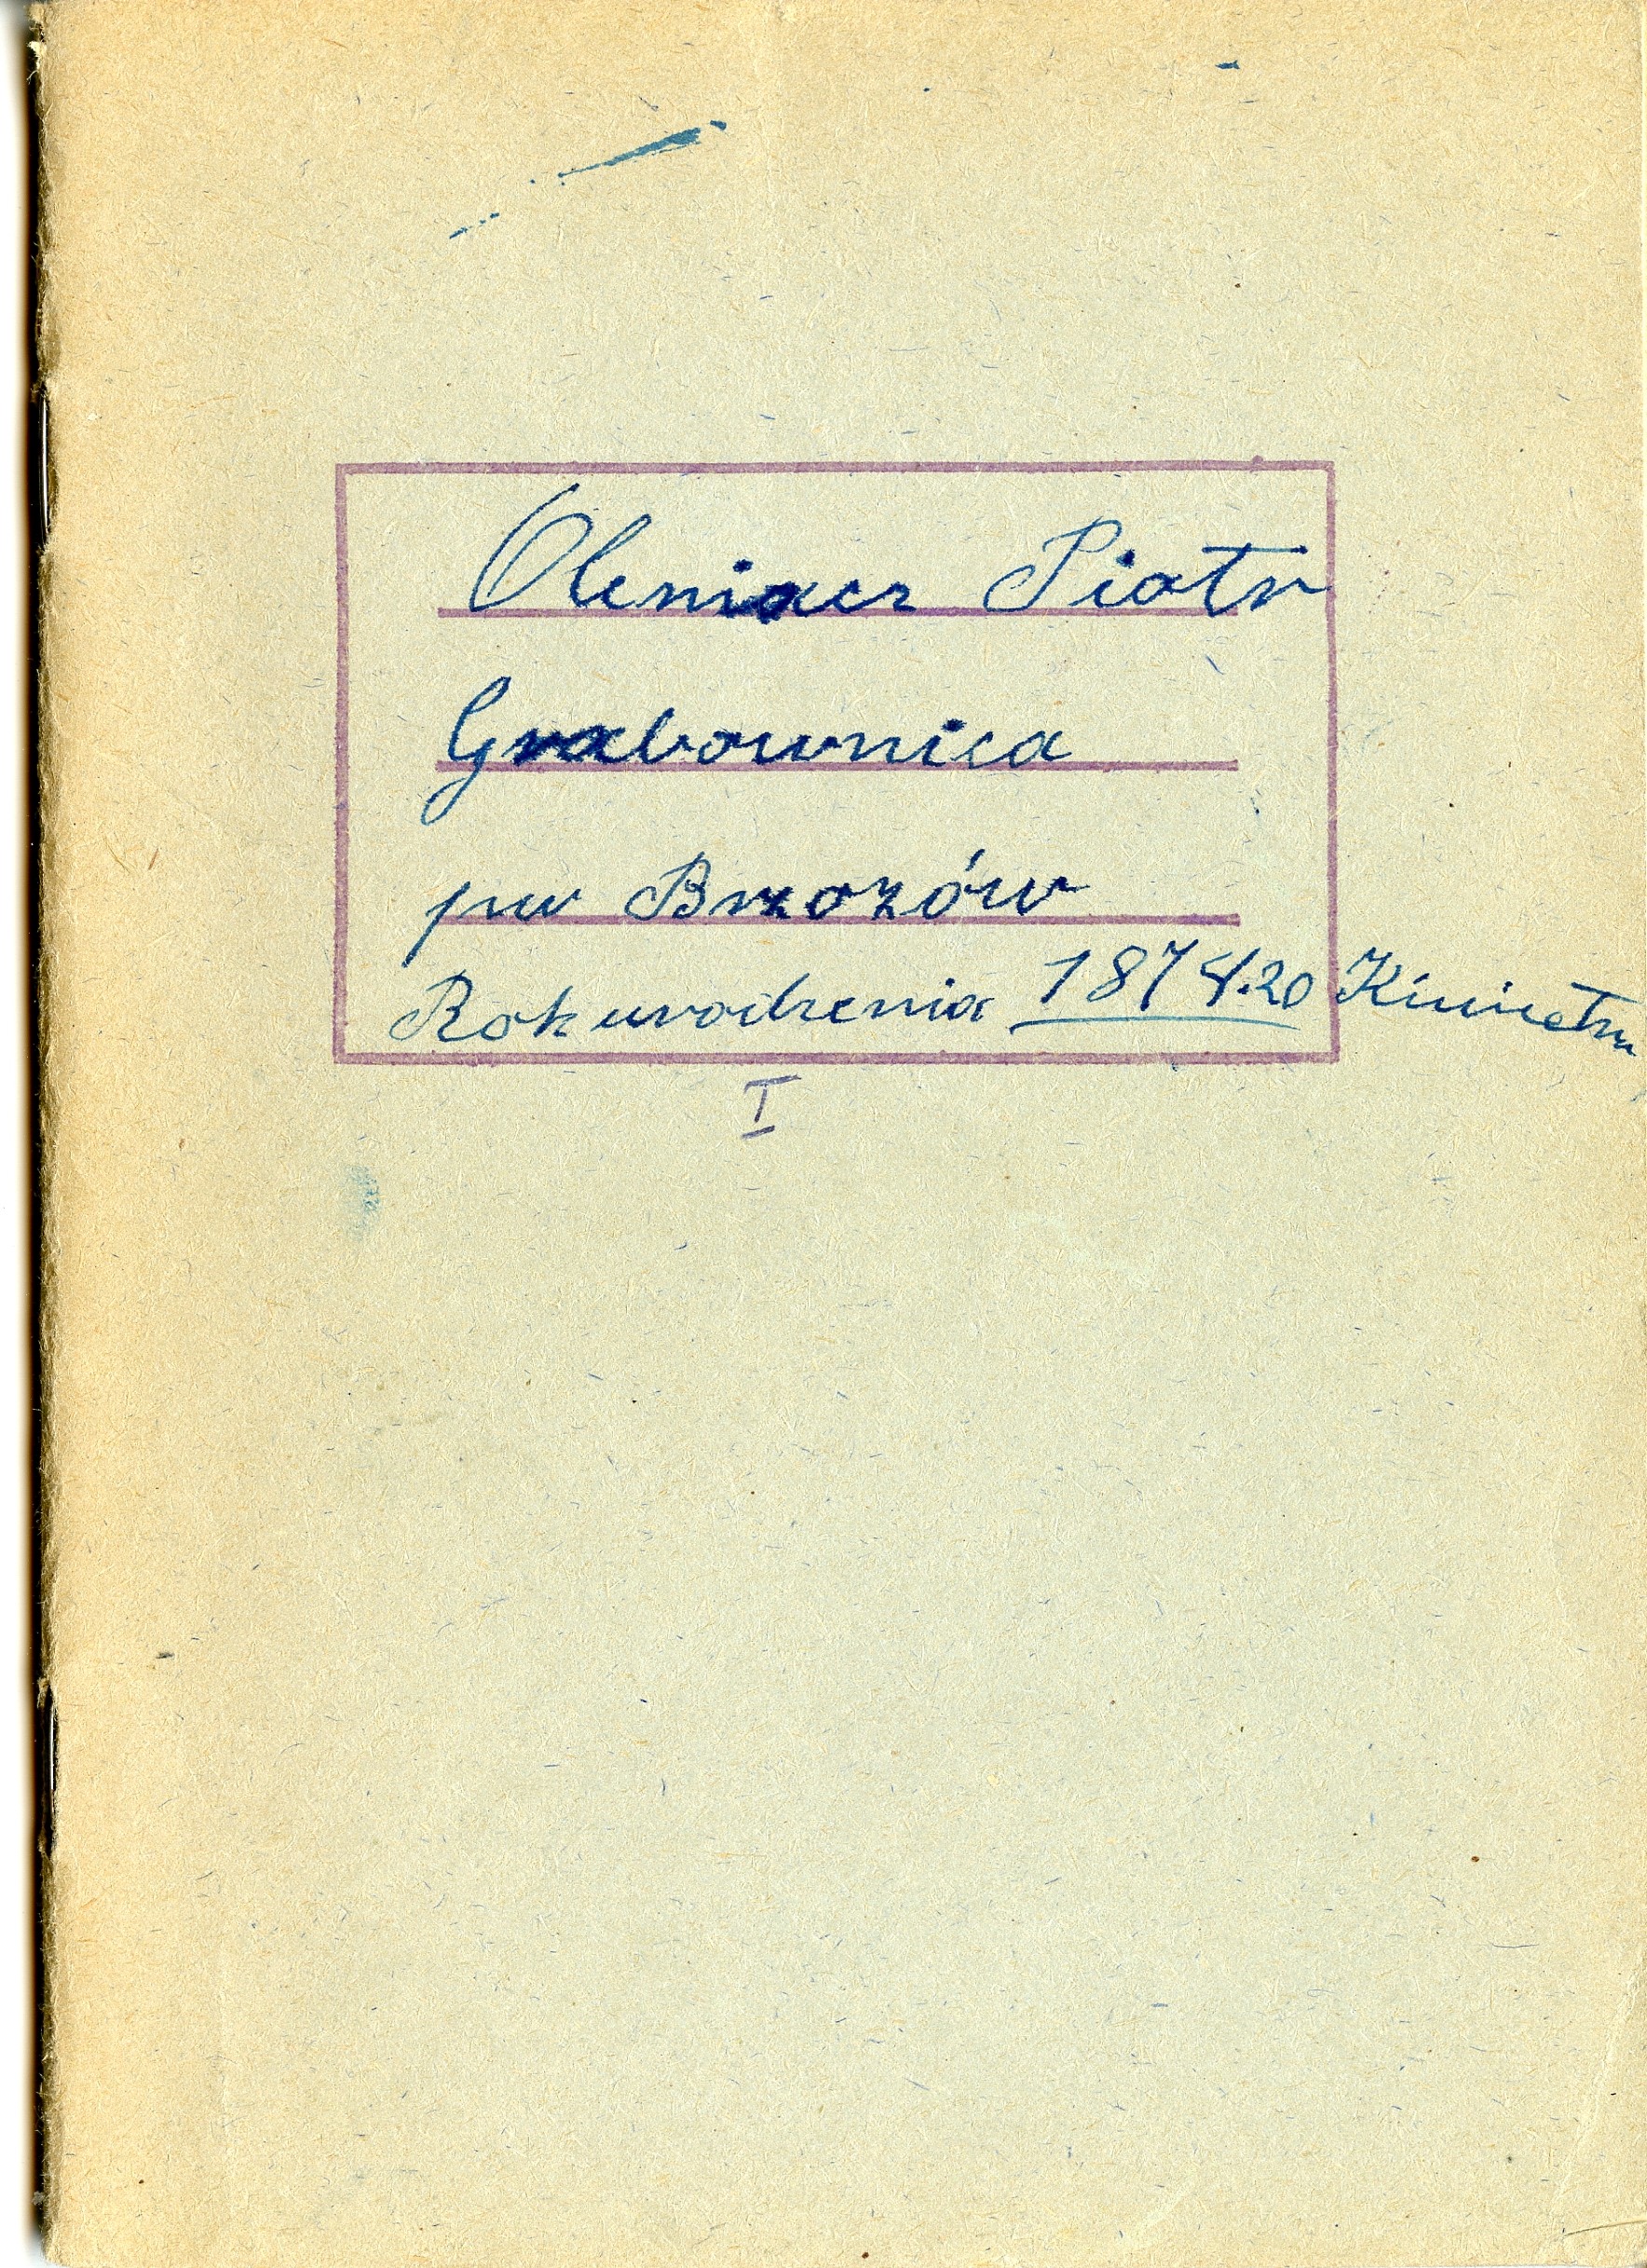 Oleniacz Piotr
Grabownica
pw Brzozów
Rok urodzenia 1874.20 Kwietnia
I